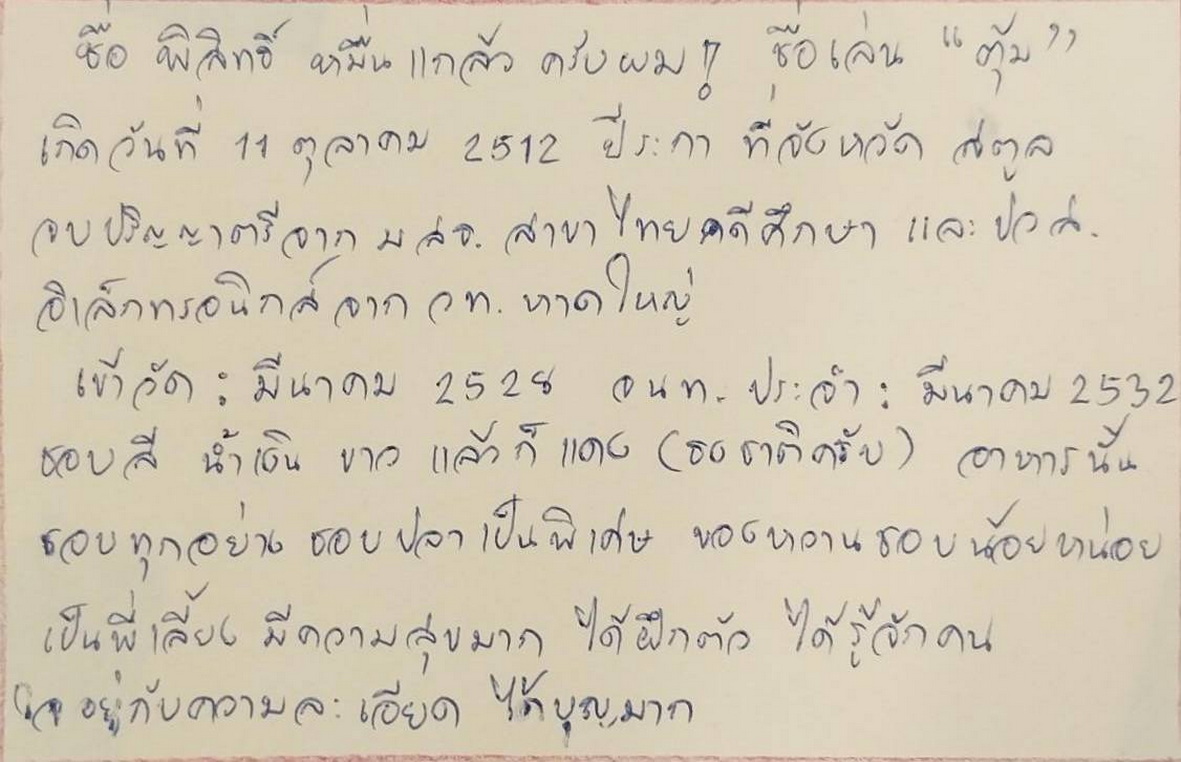 ชื่อ พิสิทธิ์ หมื่นแกล้ว ครับผม! ชื่อเล่น "ตุ้ม"
เกิดวันที่ 11 ตุลาคม 2512 ปีระกา ที่จังหวัด สตูล
จบปริญญาตรีจาก มสธ. สาขาไทยคดีศึกษา และ ปวส.
อิเล็กทรอนิกส์จาก วท. หาดใหญ่
เข้าวัด : มีนาคม 2528 อนท. ประจำ : มีนาคม 2532
ชอบสี น้ำเงิน ขาว แล้วก็ แดง (ธงชาติครับ) อาหารนั้น
ชอบทุกอย่าง ชอบปลาเป็นพิเศษ ของหวานชอบน้อยหน่อย
เป็นพี่เลี้ยง มีความสุขมาก ได้ฝึกตัว ได้รู้จักคน
ใจอยู่กับความละเอียด ได้บุญมาก